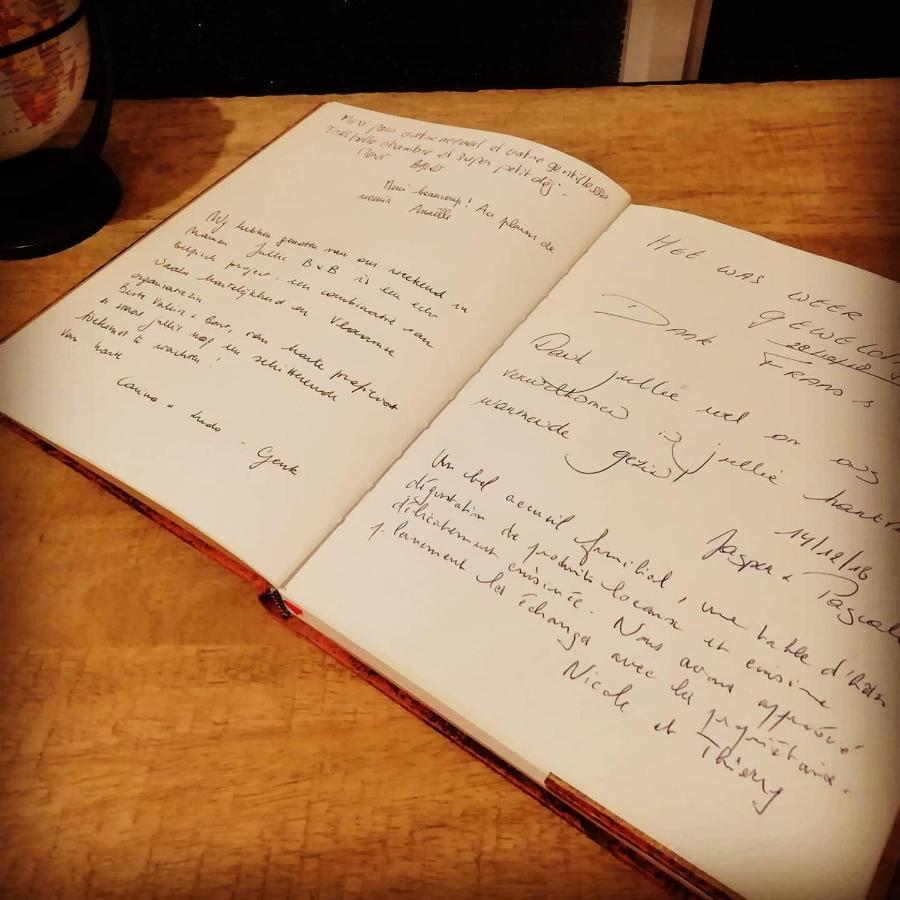 Merci pour votre accueil et votre gentillesse
Très belle chambre et super petit déj.
Merci
Merci beaucoup! Au plaisir de
revenir Anaëlle
Wij hebben genoten van ons weekend in
Namen. Jullie B&B is een echt
Belgisch project. Een combinatie van
Waalse hartelijkheid en Vlaamse
organisatiezin
Beste Valérie & Bart, van harte proficiat
& moge jullie nog een schitterende
toekomst te wachten!
Van harte
Carina & Ludo - Genk
HET WAS WEER
GEWELDIG
28/10/18
DANK FRANS &
Dank jullie wel om ons
verwelkomen in jullie
warmende gezin
14/12/18
Jasper & Pascale
Un bel accueil familial, une table d'hôtes
dégustation de produits locaux et cuisine
délicatement cuisinée. Nous avons apprécié
pleinement les échanges avec les propriétaires.
Nicole et Thierry